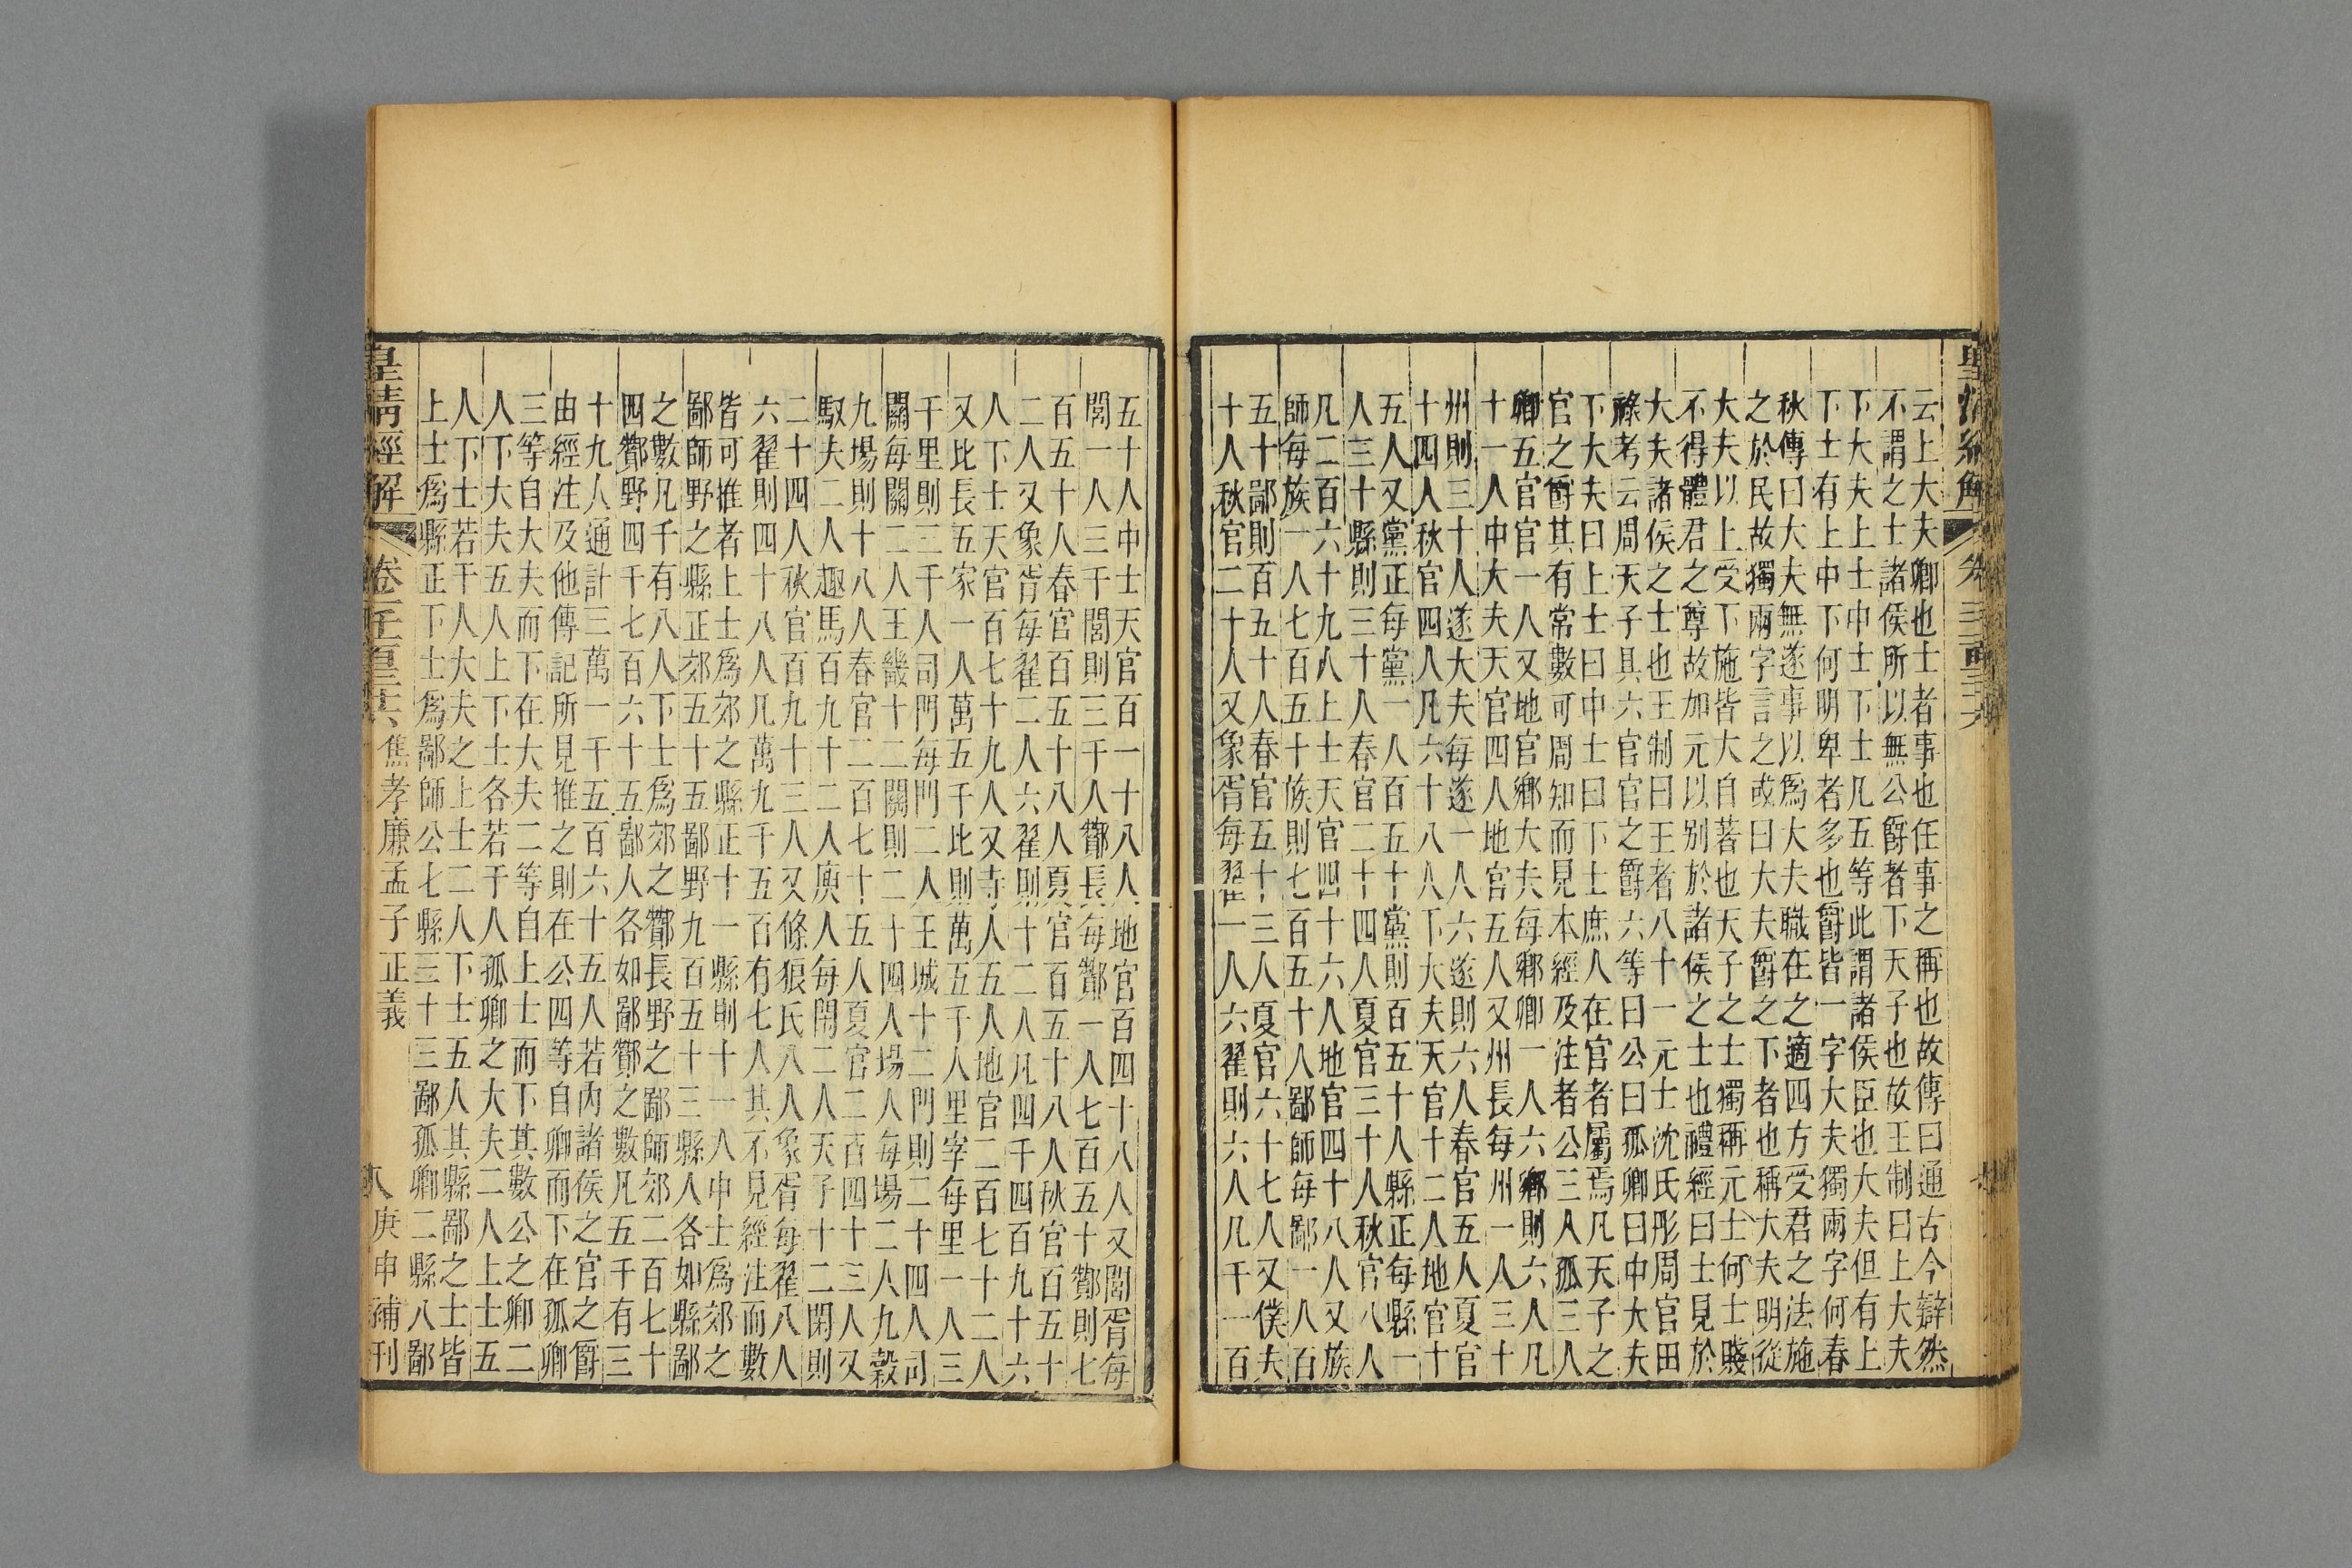 皇清經解
云上大夫卿也士者事也任事之稱也故傳曰通古今辯然
不謂之士諸侯所以無公爵者下天子也故王制曰上大夫
下大夫上士中士下士凡五等此謂諸侯臣也大夫但有上
下士有上中下何明卑者多也爵皆一字大夫獨兩字何春
秋傳曰大夫無遂事以爲大夫職在之適四方受君之法施
之於民故獨兩字言之或曰大夫爵之下者也稱大夫明從
大夫以上受下施皆大自著也天子之士獨稱元士何士賤
不得體君之尊故加元以别於諸侯之士也禮經曰士見於
大夫諸侯之士也王制曰王者八十一元士沈氏彤周官田
祿考云周天子具六官官之爵六等曰公曰孤卿曰中大夫
下大夫曰上士曰中士曰下士庶人在官者屬焉凡天子之
官之爵其有常數可周知而見本經及注者公三人孤三人
卿五官官一人又地官鄉大夫每鄉卿一人六鄉則六人凡
十一人中大夫天官四人地官五人又州長每州一人三十
州則三十人遂大夫每遂一人六遂則六人春官五人夏官
十四人秋官四人凡六十八人下大夫天官十二人地官十
五人又黨正每黨一人百五十黨則百五十人縣正每縣一
人三十縣則三十人春官二十四人夏官三十人秋官八人
凡二百六十九人上士天官四十六人地官四十八人又族
師每族一人七百五十族則七百五十人鄙師每鄙一人百
五十鄙則百五十人春官五十三人夏官六十七人又僕夫
十人秋官二十人又象胥每翟一人六翟則六人凡千一百
五十人中士天官百一十八人地官百四十八人又閭胥每
閭一人三千閭則三千人酇長每酇一人七百五十酇則七
百五十人春官百五十八人夏官百五十八人秋官百五十
二人又象胥每翟二人六翟則十二人凡四千四百九十六
人下士天官百七十九人又寺人五人地官二百七十二人
又比長五家一人萬五千比則萬五千人里宰每里一人三
千里則三千人司門每門二人王城十二門則二十四人司
關每關二人王畿十二關則二十四人場人每場二人九穀
九場則十八人春官二百七十五人夏官二百四十三人又
馭夫二人趣馬百九十二人庾人每閑二人天子十二閑則
二十四人秋官百九十三人又條狼氏八人象胥每翟八人
六翟則四十八人凡萬九千五百有七人其不見經注而數
皆可推者上士爲郊之縣正十一縣則十一人中士爲郊之
鄙師野之縣正郊五十五鄙野九百五十三縣人各如縣鄙
之數凡千有八人下士爲郊之酇長野之鄙師郊二百七十
四酇野四千七百六十五鄙人各如鄙酇之數凡五千有三
十九人通計三萬一千五百六十五人若內諸侯之官之爵
由經注及他傳記所見推之則在公四等自卿而下在孤卿
三等自大夫而下在大夫二等自上士而下其數公之卿二
人下大夫五人上下士各若干人孤卿之大夫二人上士五
人下士若干人大夫之上士二人下士五人其縣鄙之士皆
上士爲縣正下士爲鄙師公七縣三十三鄙孤卿二縣八鄙
皇清經解 卷 焦孝廉孟子正義 庚申補刊